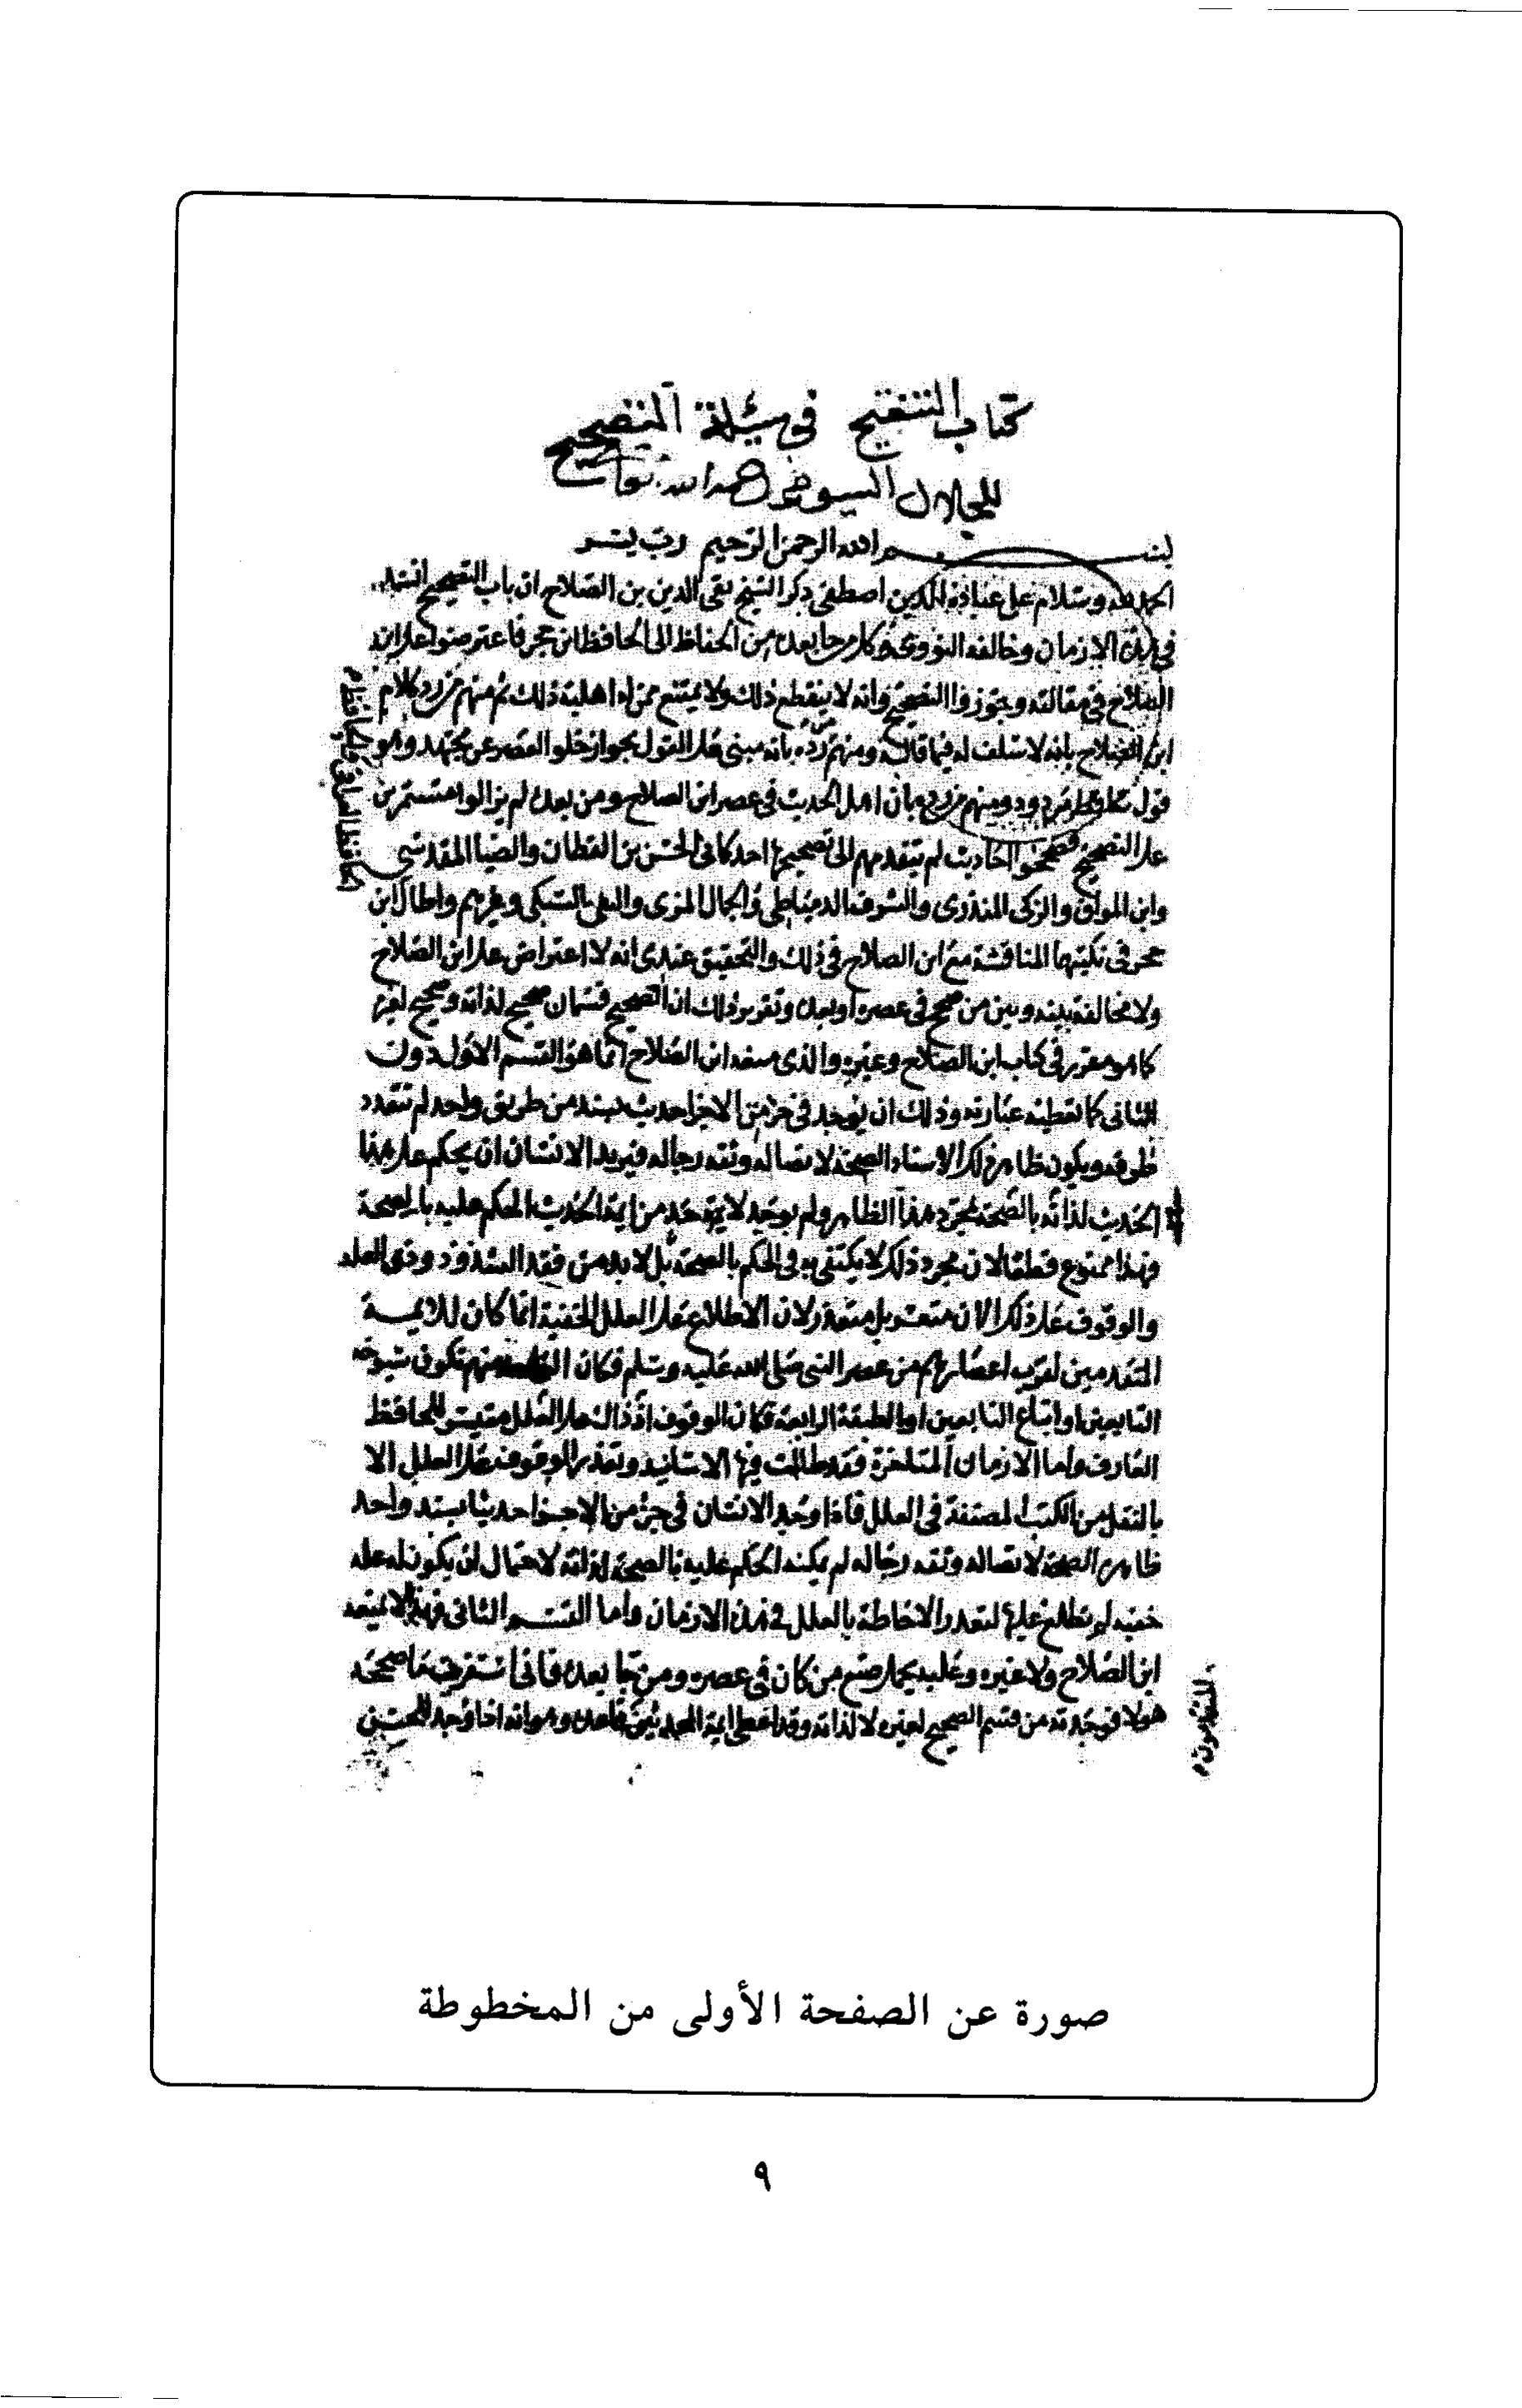 كتاب التنقيح في مسئلة التصحيح
للجلال السيوطي رحمه الله تعالى
بسم الله الرحمن الرحيم رب يسر
الحمد لله وسلام على عباده الذين اصطفى ذكر الشيخ تقى الدين بن الصلاح ان باب التصحيح انسد
في هذه الازمان وخالفه النووى وكل من جا بعده من الحفاظ الى الحافظ ابن حجر فاعترضوا على ابن
الصلاح في مقالته وجوزوا التصحيح وانه لا ينقطع ذلك ولا يمتنع ممن له اهلية ذلك ثم منهم من رد كلام
ابن الصلاح بانه لا سلف له فيما قاله ومنهم من رده بانه مبنى على القول بجواز خلو العصر عن مجتهد وهو
قول مردود ومنهم من رده بان اهل الحديث في عصر ابن الصلاح ومن بعده لم يزالوا مستمرين
على التصحيح فصححوا احاديث لم يتقدمهم الى تصحيحها احد كابى الحسن بن القطان والضيا المقدسي
وابن المواق والزكى المنذرى والشرف الدمياطي والجمال المزى والتقى السبكى وغيرهم واطال ابن
حجر في نكته المناقشة مع ابن الصلاح في ذلك والتحقيق عندى انه لا اعتراض على ابن الصلاح
ولا مخالفة بينه وبين من صحح في عصره او بعده وتقرير ذلك ان الصحيح قسمان صحيح لذاته وصحيح لغيره
كما هو مقرر في كتاب ابن الصلاح وغيره والذى منعه ابن الصلاح انما هو القسم الاول دون
الثانى كما تعطيه عبارته وذلك ان يوجد في جزء من الاجزا حديث بسند من طريق واحد لم تتعدد
طرقه ويكون ظاهر ذلك الاسناد الصحة لاتصاله وثقة رجاله فيريد الانسان ان يحكم على هذا
الحديث لذاته بالصحة لمجرد هذا الظاهر ولم يوجد لاحد من ايمة الحديث الحكم عليه بالصحة
فهذا ممنوع قطعا لان مجرد ذلك لا يكتفى به في الحكم بالصحة بل لا بد من فقد الشذوذ ونفى العلة
والوقوف على ذلك الان متعسر بل متعذر لان الاطلاع على العلل الخفية انما كان للايمة
المتقدمين لقرب اعصارهم من عصر النبي صلى الله عليه وسلم فكان منهم تكون شيوخه
التابعين او اتباع التابعين او الطبقة الرابعة فكان الوقوف اذ ذاك على العلل متيسر للحافظ
العارف واما الازمان المتاخرة فقد طالت فيها الاسانيد وتعذر الوقوف على العلل الا
بالنقل من الكتب المصنفة في العلل فاذا وجد الانسان في جزء من الاجزا حديثا بسند واحد
ظاهره الصحة لاتصاله وثقة رجاله لم يمكنه الحكم عليه بالصحة لذاته لاحتمال ان يكون له علة
خفية لم نطلع عليها لتعذر الاحاطة بالعلل في هذه الازمان واما القسم الثانى فهذا لا يمنعه
ابن الصلاح ولا غيره وعليه يحمل صنع من كان في عصره ومن جا بعده فانى استقريت ما صححه
هولا فوجدته من قسم الصحيح لغيره لا لذاته وقد اعطى ايمة المحدثين قاعدة وهو انه اذا وجد للحسن
صورة عن الصفحة الأولى من المخطوطة
٩